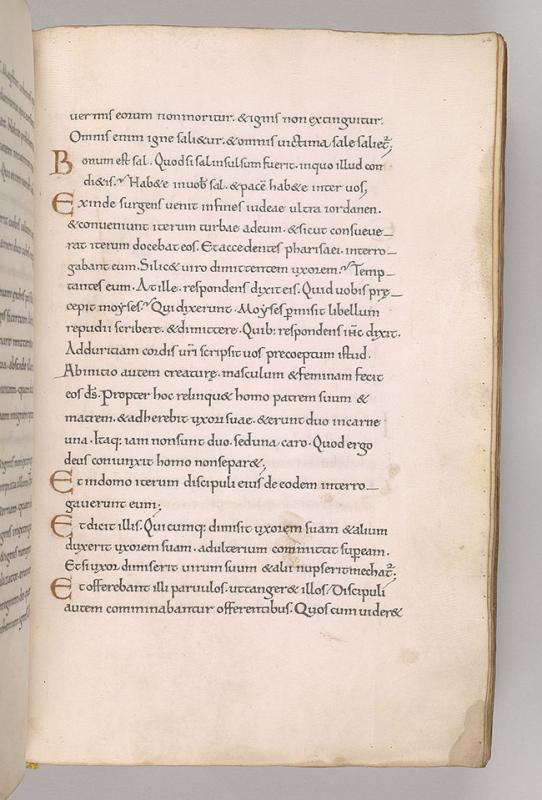 uermis eorum non moritur. & ignis non extinguitur.
Omnis enim igne sali&ur. & omnis uictima sale saliet̃;
Bonum est sal. Quodsi sal insulsum fuerit. in quo illud con
di&is? Hab&e in uob̄ sal. & pacē hab&e inter uos;
Exinde surgens uenit in fines iudeae ultra iordanen.
& conueniunt iterum turbae ad eum. & sicut consueue_
rat iterum docebat eos. Et accedentes pharisaei interro_
gabant eum. Si lic& uiro dimittentem uxorem? Temp_
tantes eum. At ille respondens dixit eis. Quid uobis pre_
cepit moyses? Qui dixerunt. Moyses p̄misit libellum
repudii scribere. & dimittere. Quib: respondens ihc̄ dixit.
Ad duritiam cordis ur̄i scripsit uos precoeptum istud.
Ab initio autem creaturę. masculum & feminam fecit
eos ds̄. Propter hoc relinqu& homo patrem suum &
matrem. & adherebit uxori suae. & erunt duo in carne
una. Itaq; iam non sunt duo. sed una caro. Quod ergo
deus coniunxit homo non separ&;
Et in domo iterum discipuli eius de eodem interro_
gauerunt eum;
Et dicit illis. Quicumq; dimisit uxorem suam & aliam
duxerit uxorem suam. adulterium committit sup eam.
Et si uxor dimiserit uirum suum & alii nupserit mechat̃;
Et offerebant illi paruulos. ut tanger& illos. Discipuli
autem comminabantur offerentibus. Quos cum uider&